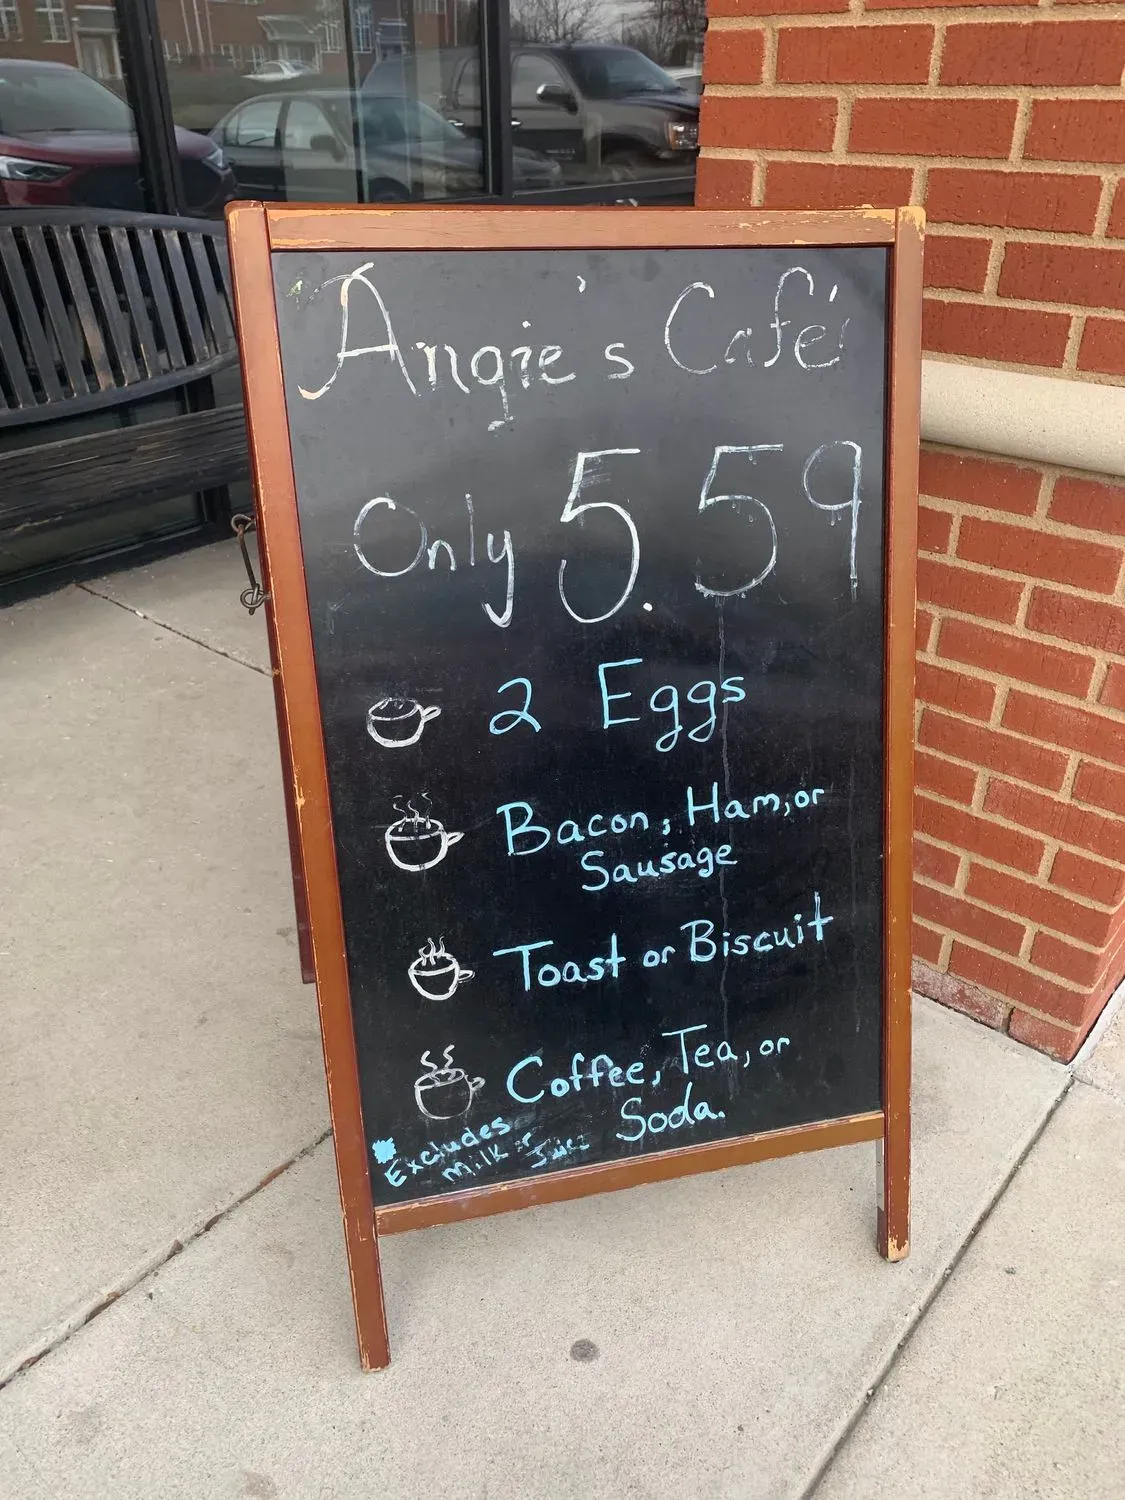 Angie's Café
Only 5.59
2 Eggs
Bacon, Ham, or
Sausage
Toast or Biscuit
Coffee, Tea, or
Soda.
* Excludes
Milk or
Juice